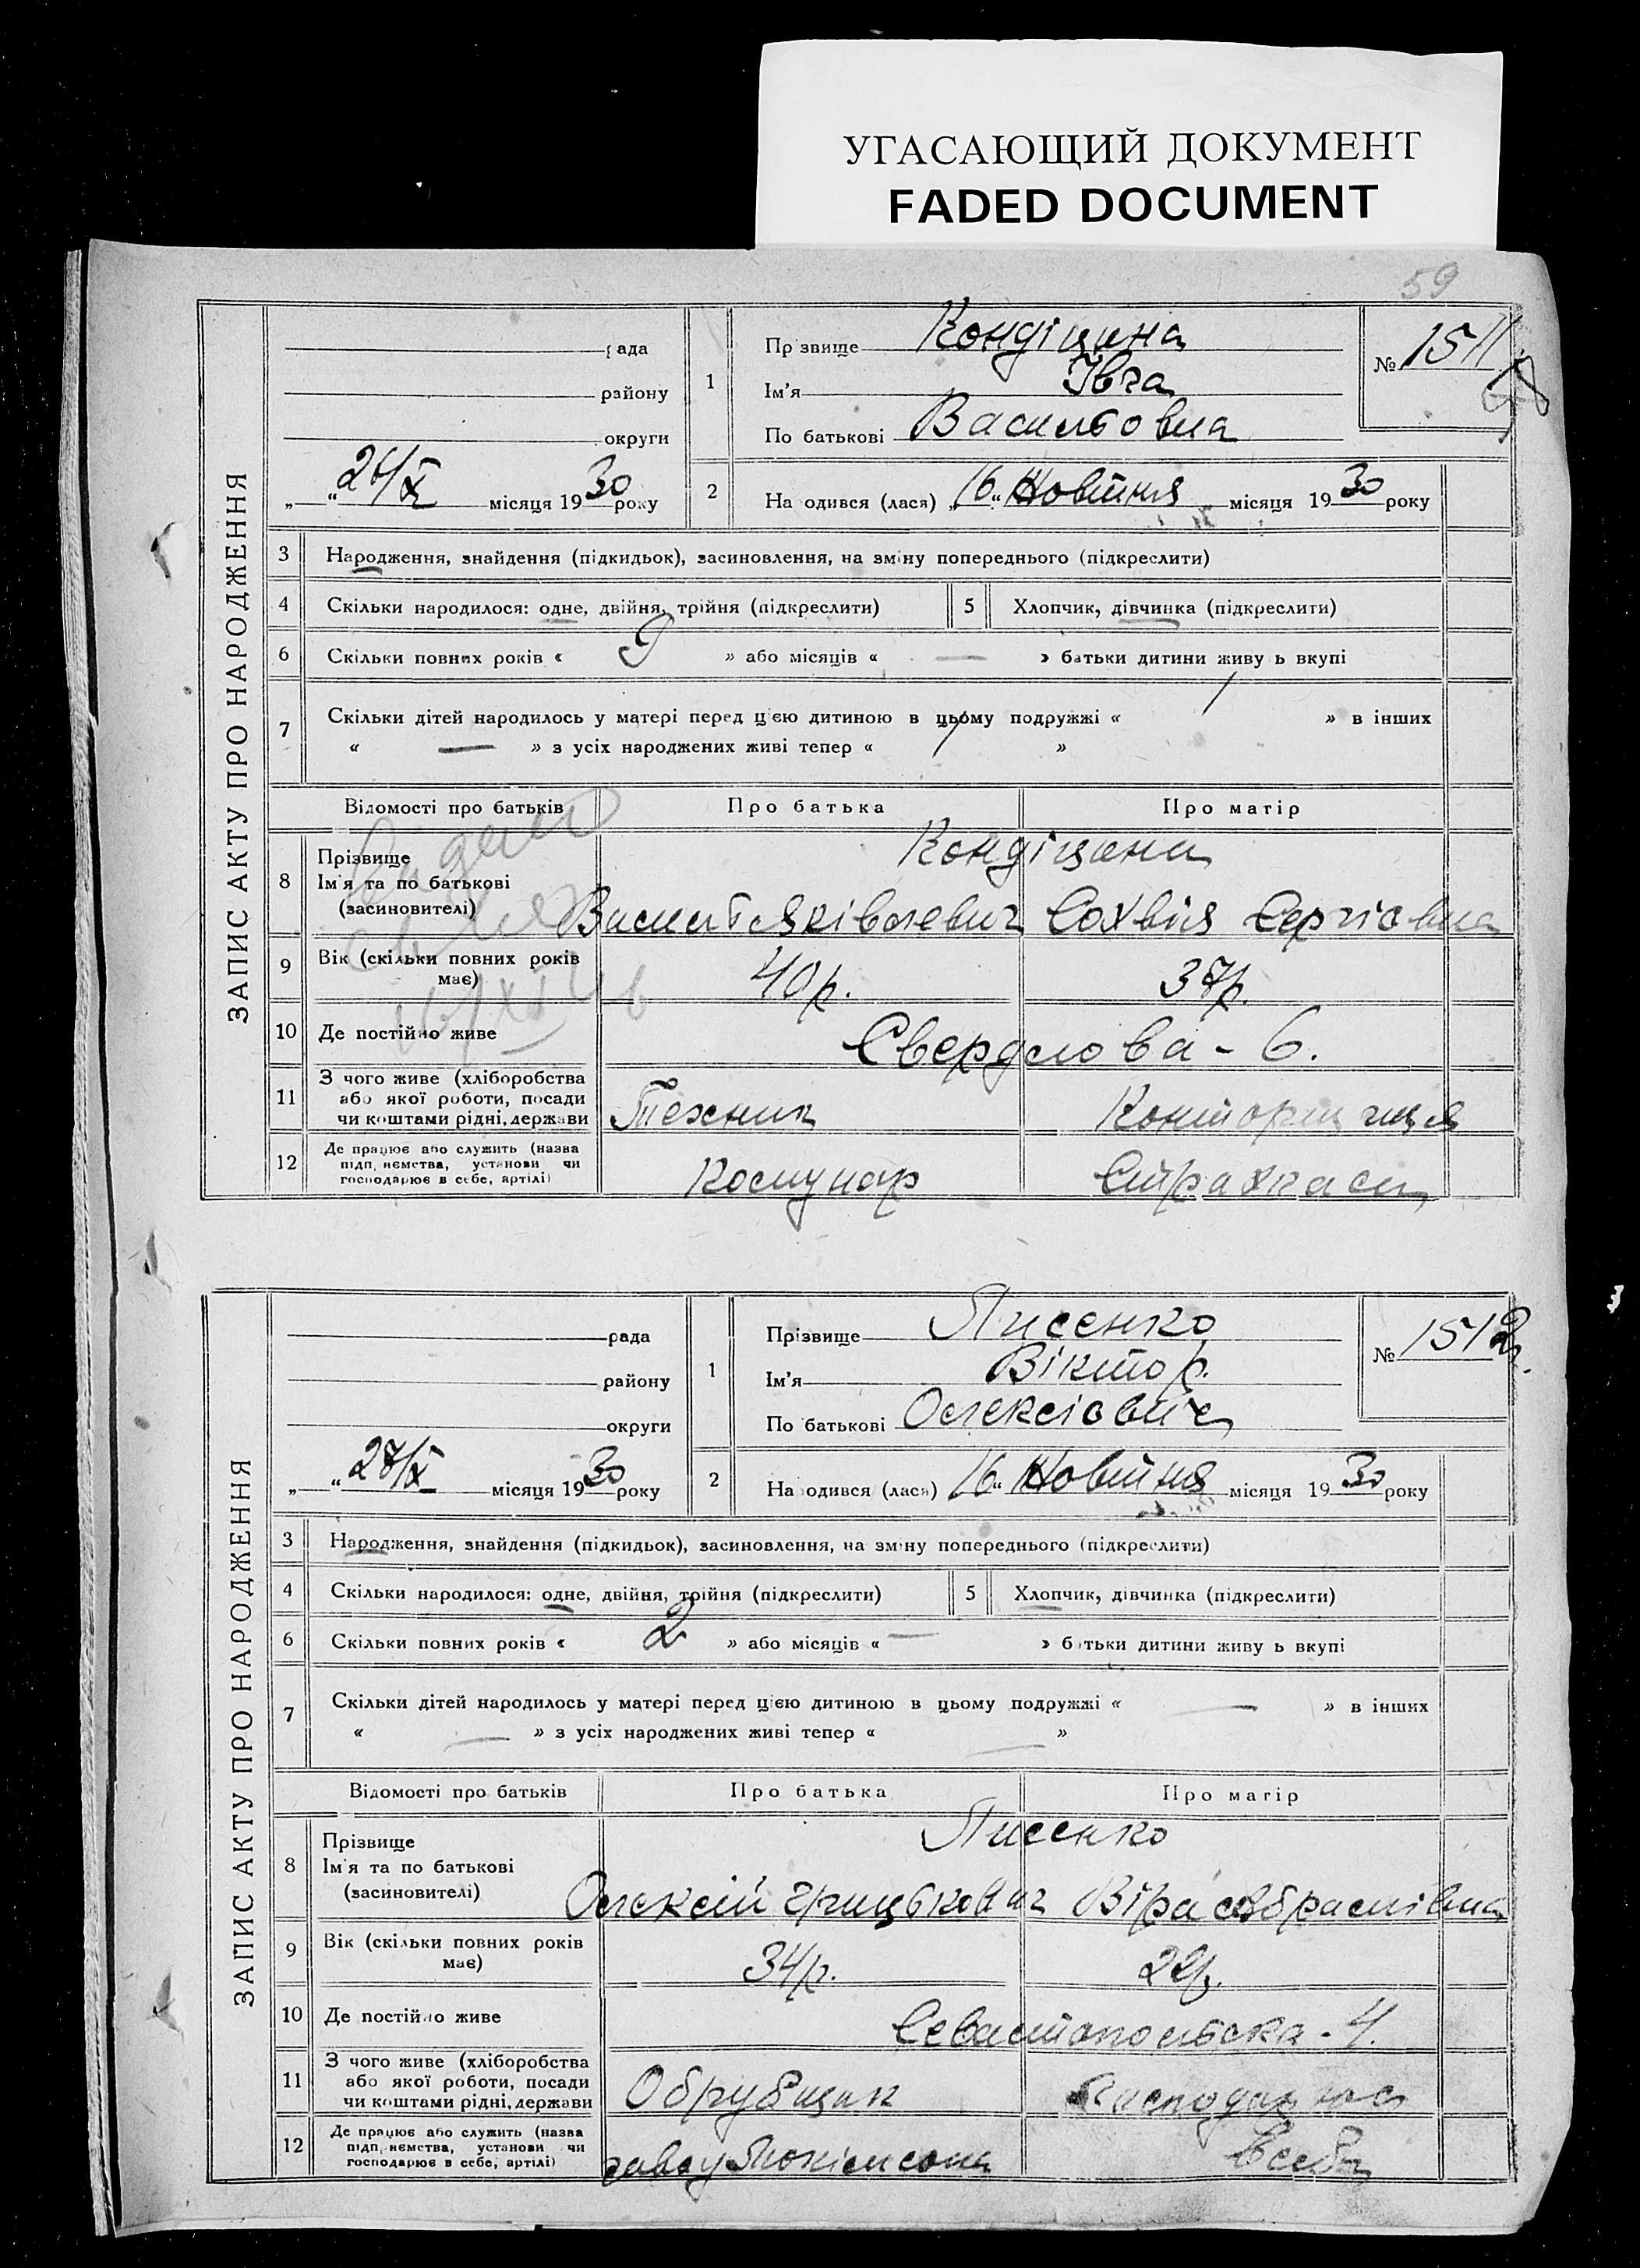 УГАСАЮЩИЙ ДОКУМЕНТ
FADED DOCUMENT
59
ЗАПИС АКТУ ПРО НАРОДЖЕННЯ
рада
району
округи
„ “ місяця 1930 року
1
Прізвище Кондіцина
Ім'я Івга
По батькові Васильовна
№ 1511
2 На одився (лася) „16“ Жовтня місяця 1930 року
3 Народження, знайдення (підкидьок), засиновлення, на зміну попереднього (підкреслити)
4 Скільки народилося: одне, двійня, трійня (підкреслити) 5 Хлопчик, дівчинка (підкреслити)
6 Скільки повних років « 9 » або місяців « — » батьки дитини живу ь вкупі
7 Скільки дітей народилось у матері перед цією дитиною в цьому подружжі « 1 » в інших
« — » з усіх народжених живі тепер « 1 »
Відомості про батьків Про батька Про матір
8 Прізвище
Ім'я та по батькові
(засновителі)
Кондіцини
Василь Яківлевич Софвія Сергієвна
9 Вік (скільки повних років має) 40р. 37р.
10 Де постійно живе Свердлова - 6.
11 З чого живе (хліборобства
або якої роботи, посади
чи коштами рідні, держави
Технік Конторщиця
12 Де працює або служить (назва
підп.иємства, установи чи
господарює в себе, артілі)
Комунар Страхкаси
ЗАПИС АКТУ ПРО НАРОДЖЕННЯ
рада
району
округи
„ “ 27/X місяця 1930 року
1
Прізвище Лисенко
Ім'я Віктор
По батькові Олексієвич
№ 1512
2 На одився (лася) „16“ Жовтня місяця 1930 року
3 Народження, знайдення (підкидьок), засиновлення, на зміну попереднього (підкреслити)
4 Скільки народилося: одне, двійня, трійня (підкреслити) 5 Хлопчик, дівчинка (підкреслити)
6 Скільки повних років « 2 » або місяців « — » батьки дитини живу ь вкупі
7 Скільки дітей народилось у матері перед цією дитиною в цьому подружжі « — » в інших
« — » з усіх народжених живі тепер « — »
Відомості про батьків Про батька Про матір
8 Прізвище
Ім'я та по батькові
(засиновителі)
Лисенко
Олексій Грицькович Віра Абрамівна
9 Вік (скільки повних років має) 34р. 22р.
10 Де постійно живе Севастопольска - 4.
11 З чого живе (хліборобства
або якої роботи, посади
чи коштами рідні, держави
Обрубщик Господарює
12 Де працює або служить (назва
підп.иємства, установи чи
господарює в себе, артілі)